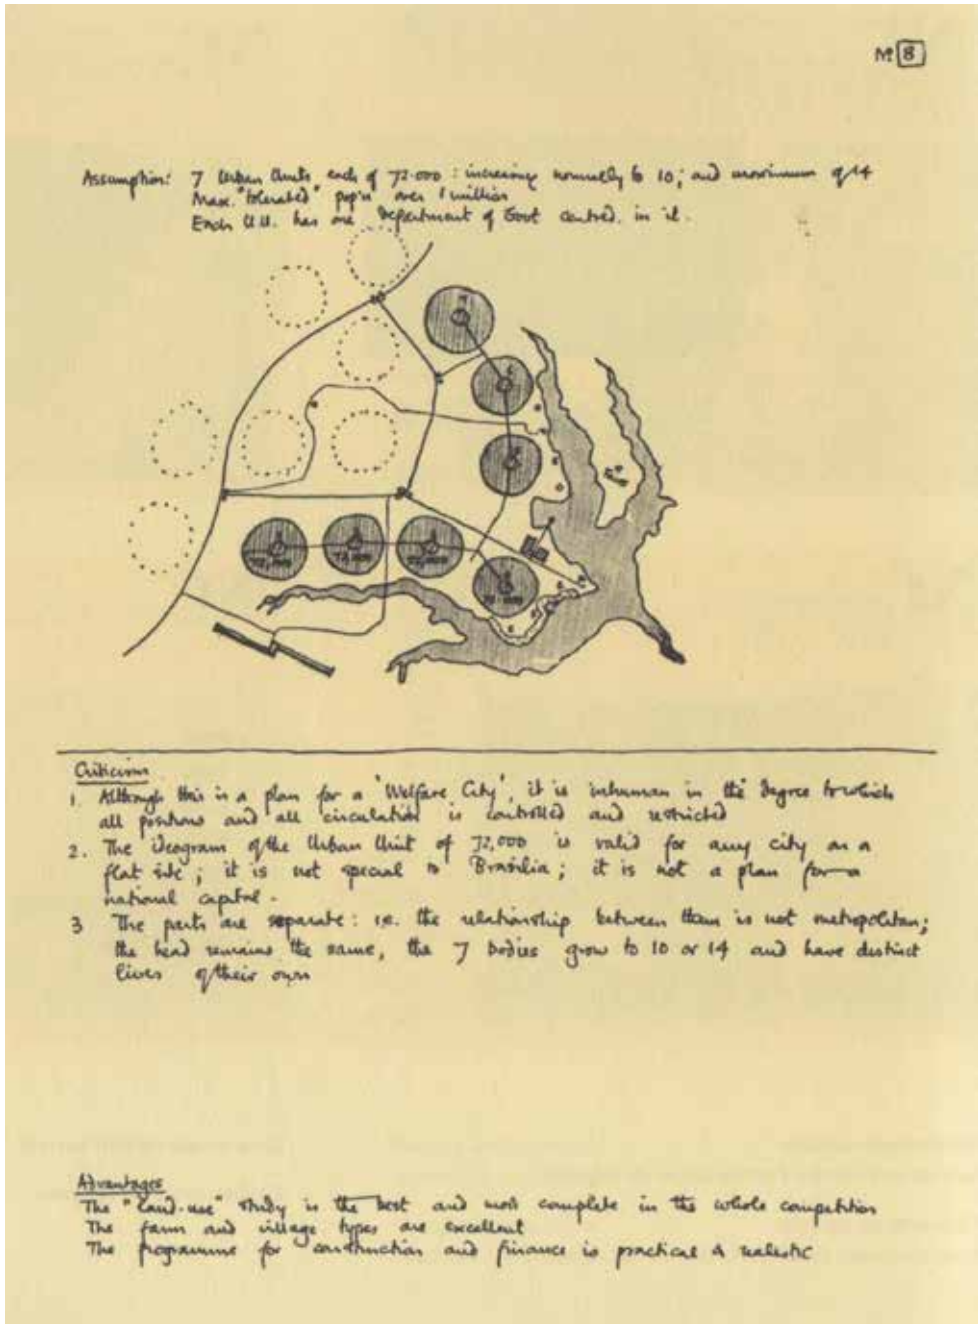 Nº 8
Assumption: 7 Urban Units each of 72.000 : increasing normally to 10; and maximum of 14
Max. "tolerated" pop'n over 1 million
Each U.U. has one Department of Govt centred in it.
72,000
72,000
Criticism
1. Although this is a plan for a 'Welfare City', it is inhuman in the degree to which
all positions and all circulation is controlled and restricted
2. The ideogram of the Urban Unit of 72,000 is valid for any city on a
flat site; it is not special to Brasilia; it is not a plan for a
national capital.
3 The parts are separate: i.e. the relationship between them is not metropolitan;
the head remains the same, the 7 bodies grow to 10 or 14 and have distinct
lives of their own
Advantages
The "Land-use" study is the best and most complete in the whole competition
The farm and village types are excellent
The programme for construction and finance is practical & realistic